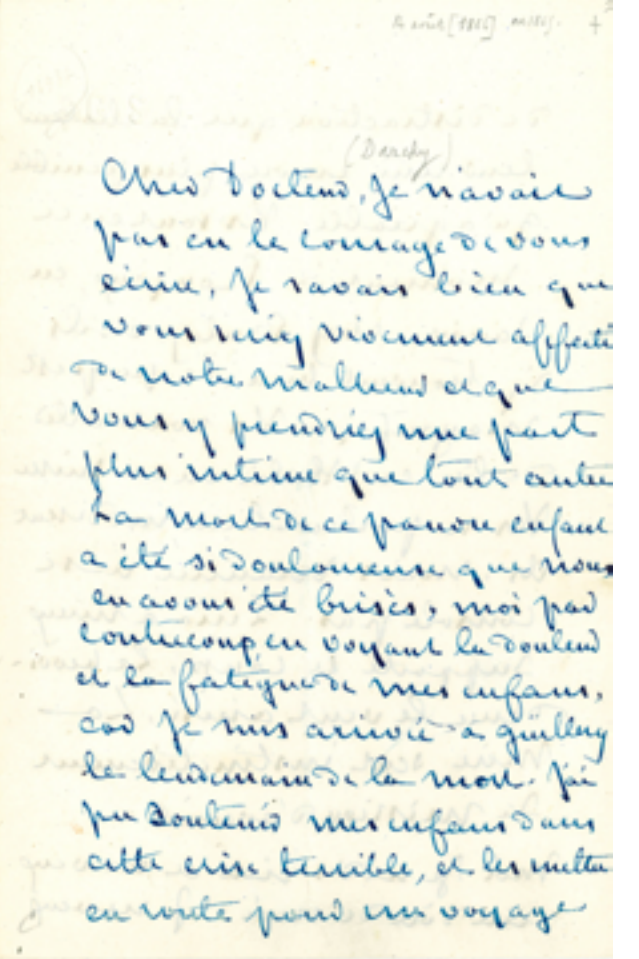 août [1864]
+
(Darchy)
Cher Docteur, Je n'avais
pas eu le courage de vous
écrire, Je savais bien que
vous seriez vivement affecté
de notre malheur et que
vous y prendriez une part
plus intime que tout autre
La mort de ce pauvre enfant
a été si douloureuse que nous
en avons été brisés, moi par
contrecoup, en voyant la douleur
et la fatigue de mes enfans,
car Je suis arrivée à Guillery
le lendemain de la mort. J'ai
pu soutenir mes enfans dans
cette crise terrible, et les mettre
en route pour un voyage